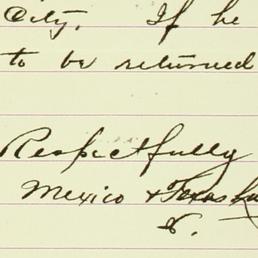 City. If he
to be returned
Respectfully
Mexico & Texas